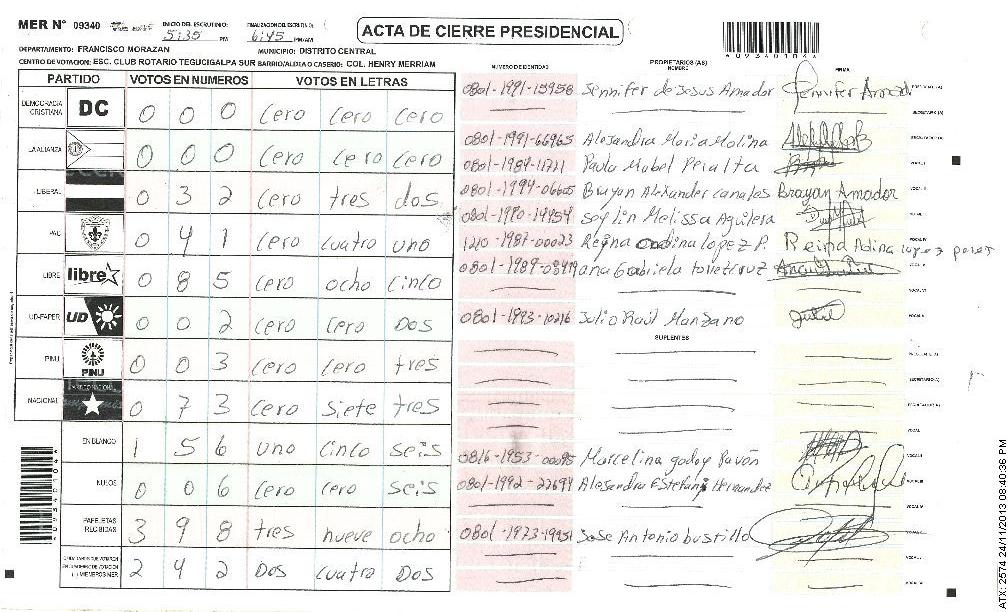 MER N° 09340
INICIO DEL ESCRUTINIO: 5:35 PM
FINALIZACION DEL ESCRUTINIO: 6:45 PM/AM
ACTA DE CIERRE PRESIDENCIAL
DEPARTAMENTO: FRANCISCO MORAZAN MUNICIPIO: DISTRITO CENTRAL
CENTRO DE VOTACION: ESC. CLUB ROTARIO TEGUCIGALPA SUR BARRIO/ALDEA O CASERIO: COL. HENRY MERRIAM
PARTIDO VOTOS EN NUMEROS VOTOS EN LETRAS
DEMOCRACIA CRISTIANA DC 0 0 0 Cero Cero Cero
LA ALIANZA 0 0 0 Cero Cero Cero
LIBERAL 0 3 2 Cero tres dos
PAC 0 4 1 Cero cuatro uno
LIBRE libre 0 8 5 Cero ocho cinco
UD-FAPER UD 0 0 2 Cero Cero Dos
PINU PINU 0 0 3 Cero Cero tres
NACIONAL 0 7 3 Cero Siete tres
EN BLANCO 1 5 6 uno Cinco seis
NULOS 0 0 6 Cero Cero seis
PAPELETAS RECIBIDAS 3 9 8 tres nueve ocho
2 4 2 Dos cuatro Dos
NUMERO DE IDENTIDAD PROPIETARIOS (AS) NOMBRE FIRMA
0801-1991-15958 Jennifer de Jesus Amador Jennifer Amad
0801-1991-66965 Alejandra Maria Molina
0801-1989-11711 Paula Mabel Peralta
0801-1994-06605 Brayan Alexander canales Brayan Amador
0801-1990-19954 Seylin Melissa Aguilera
1210-1987-00023 Reyna Lopez P. Reina lopez perez
ana Gabriela
0801-1993-10216 Julio Raúl Manzano
SUPLENTES
0816-1953-00095 Marcelina godoy Pavón
0801-1992-22699 Alesandra Estefani Hernandez
Jose Antonio bustillo
ATX: 2574 24/11/2013 08:40:36 PM